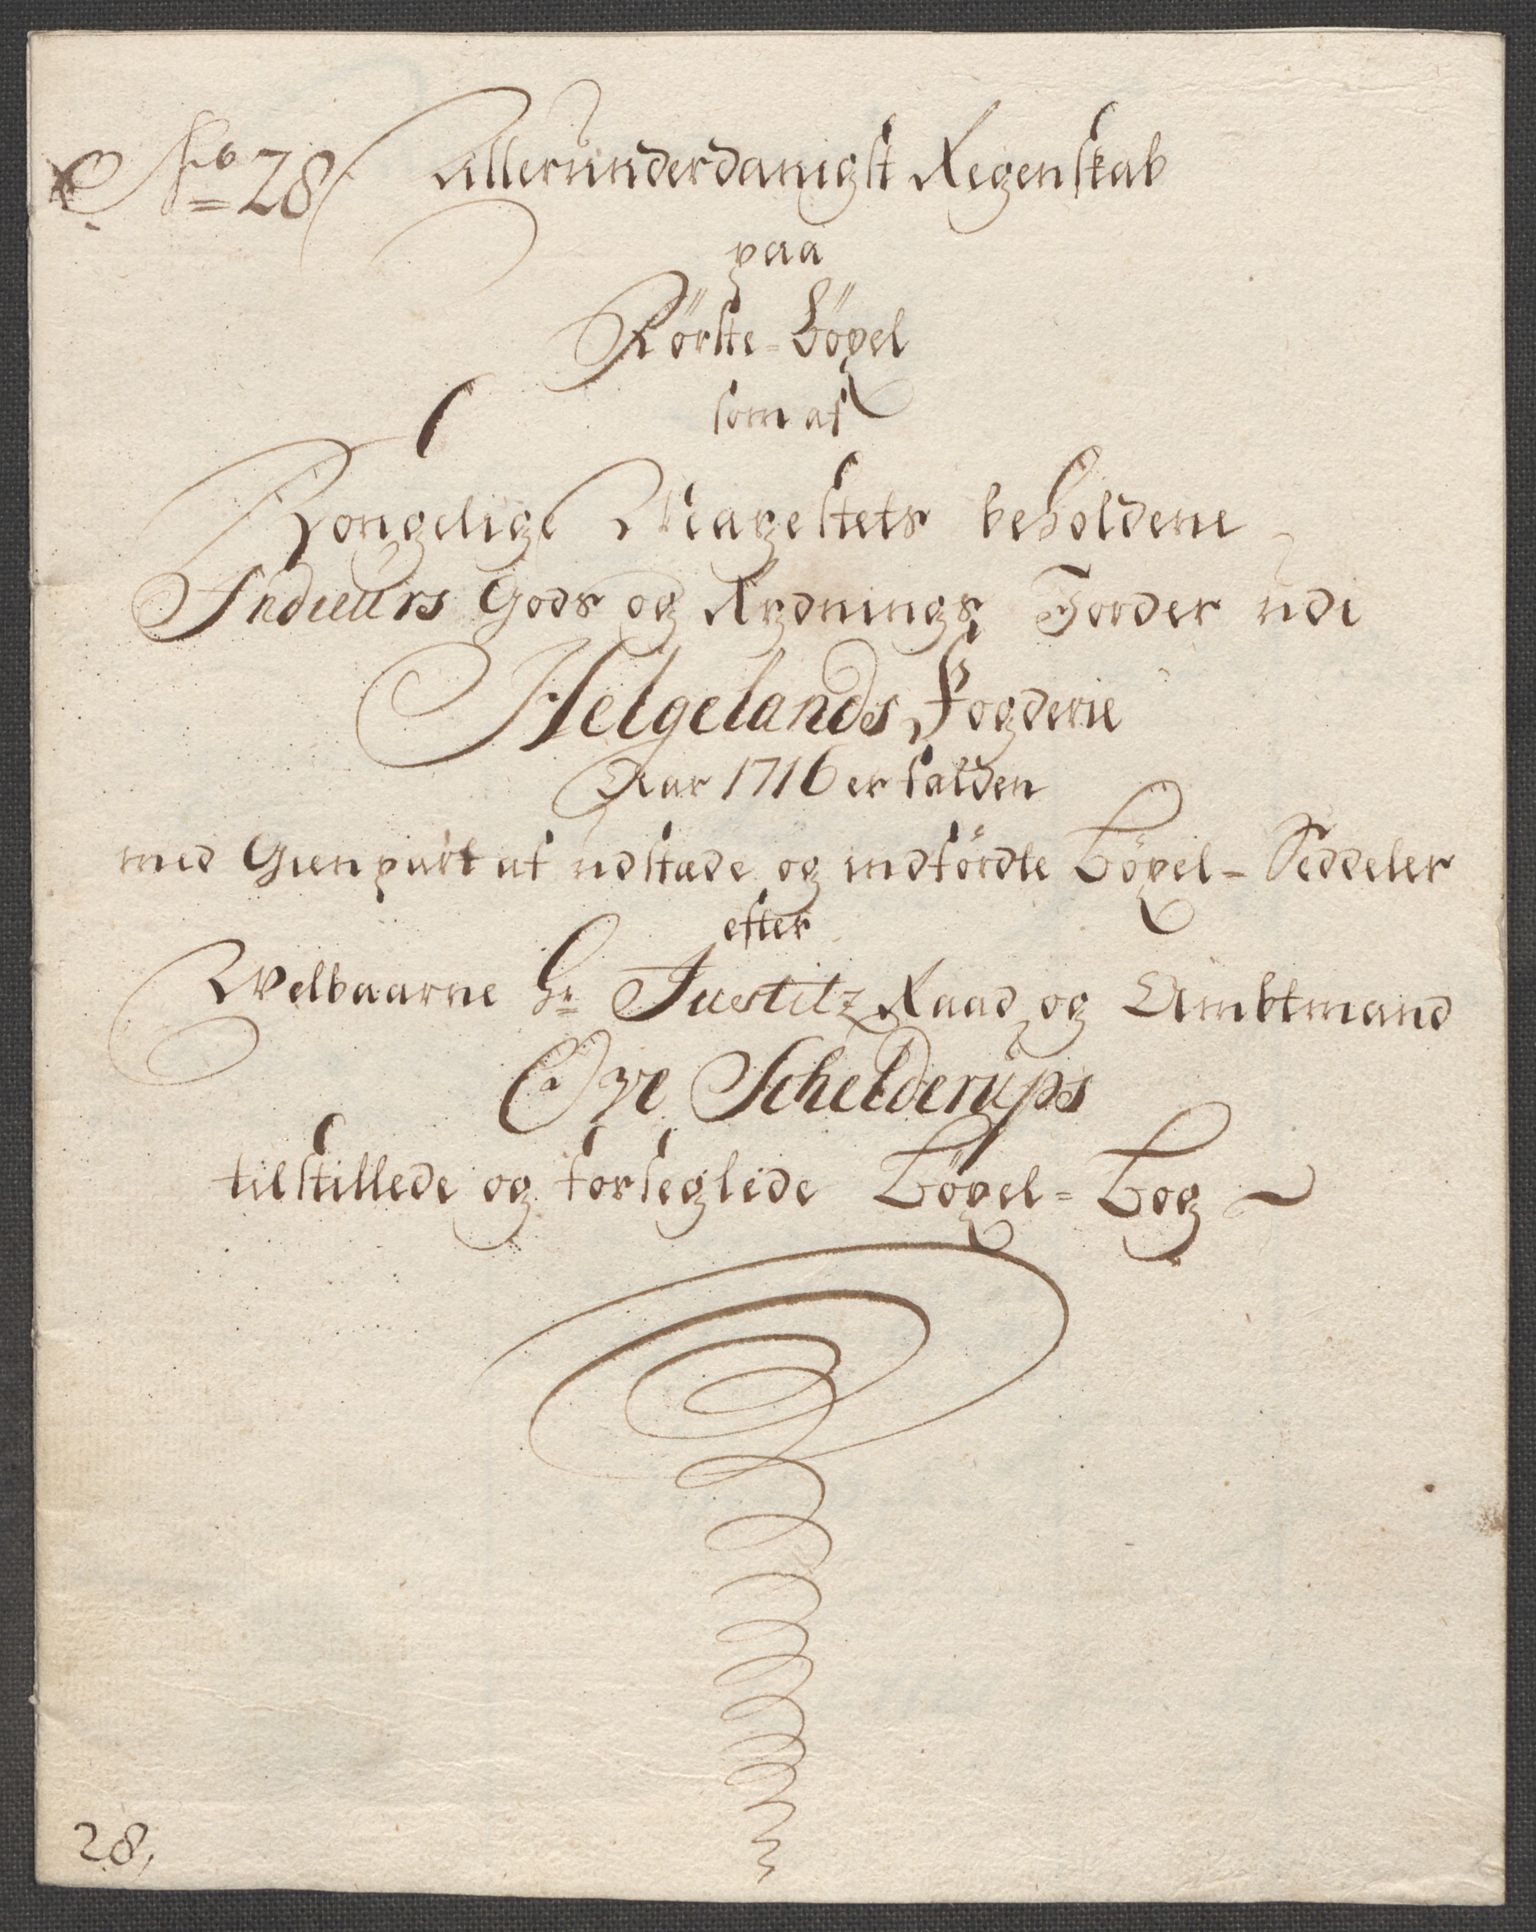 No 28 Allerunderdanigst Regenskab
paa
Förste-Böxel
som af
Kongelige Mayestets beholdene
Indieurs Gods og Rydnings Jorder udi
Helgelands Fogderie
Aar 1716 er falden
med Gienpart af udstæde og indfördte Böxel-Seddeler
efter
Welbaarne Hr Justitz Raad og Ambtmand
Ove Schelderups
tilstillede og forseglede Böxel-Bog
28,